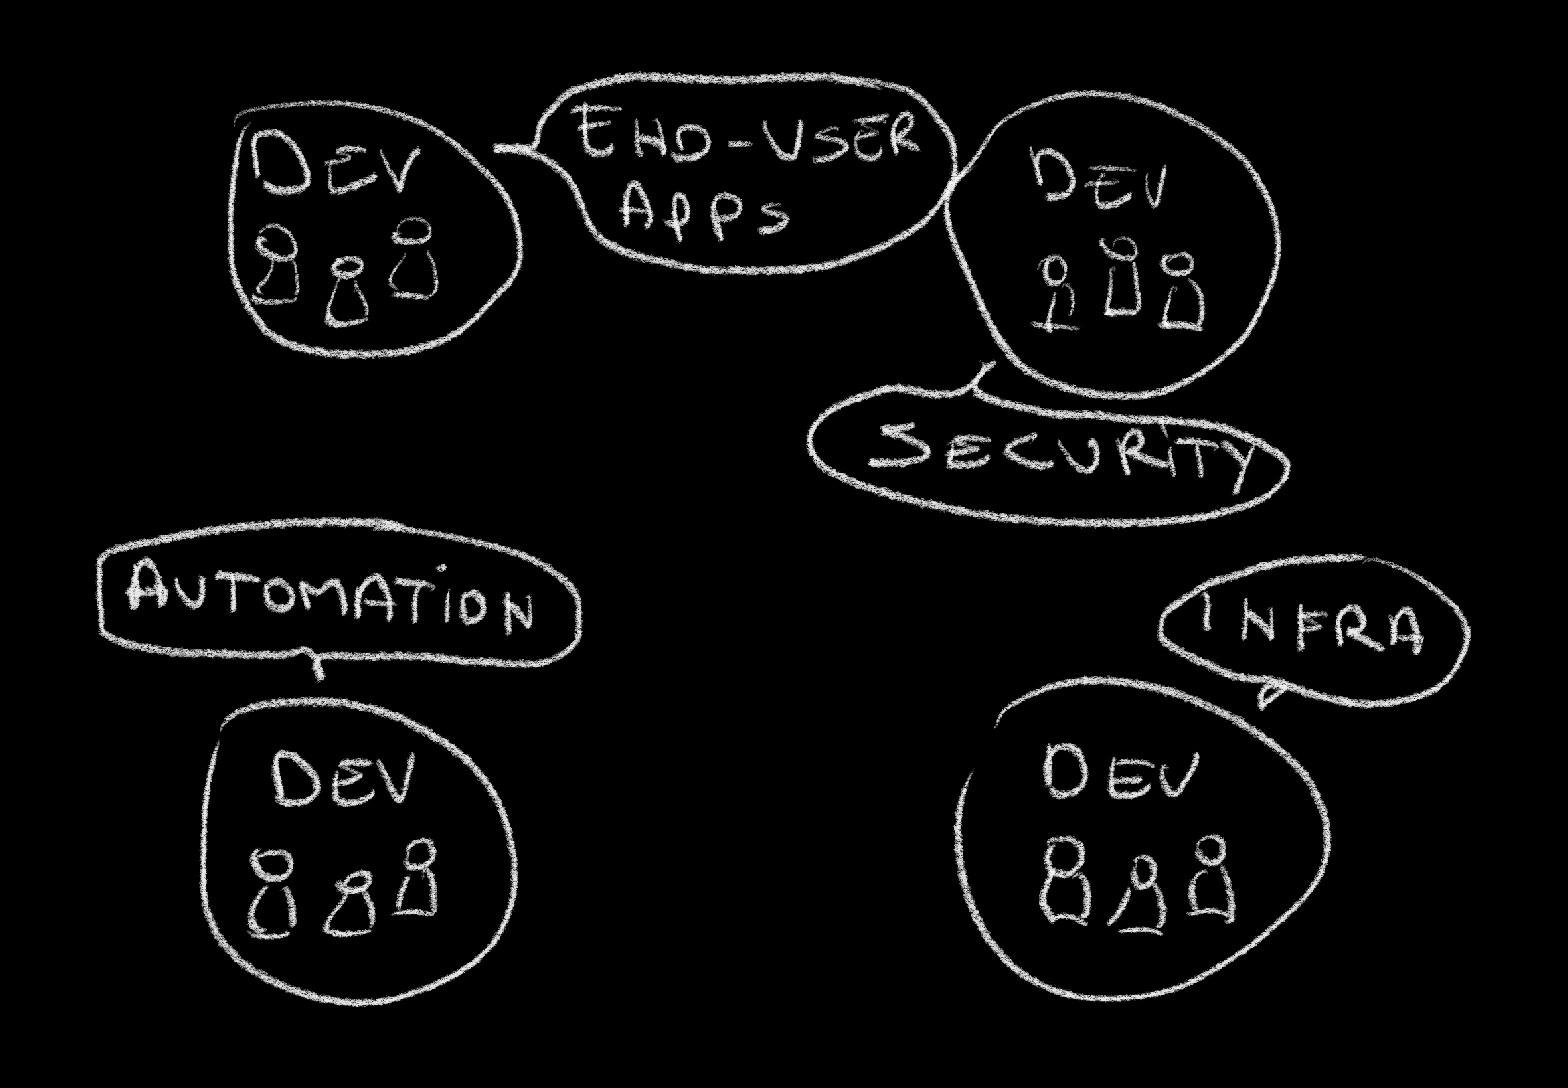 DEV
END-USER
APPS
DEV
SECURITY
AUTOMATION
INFRA
DEV
DEV